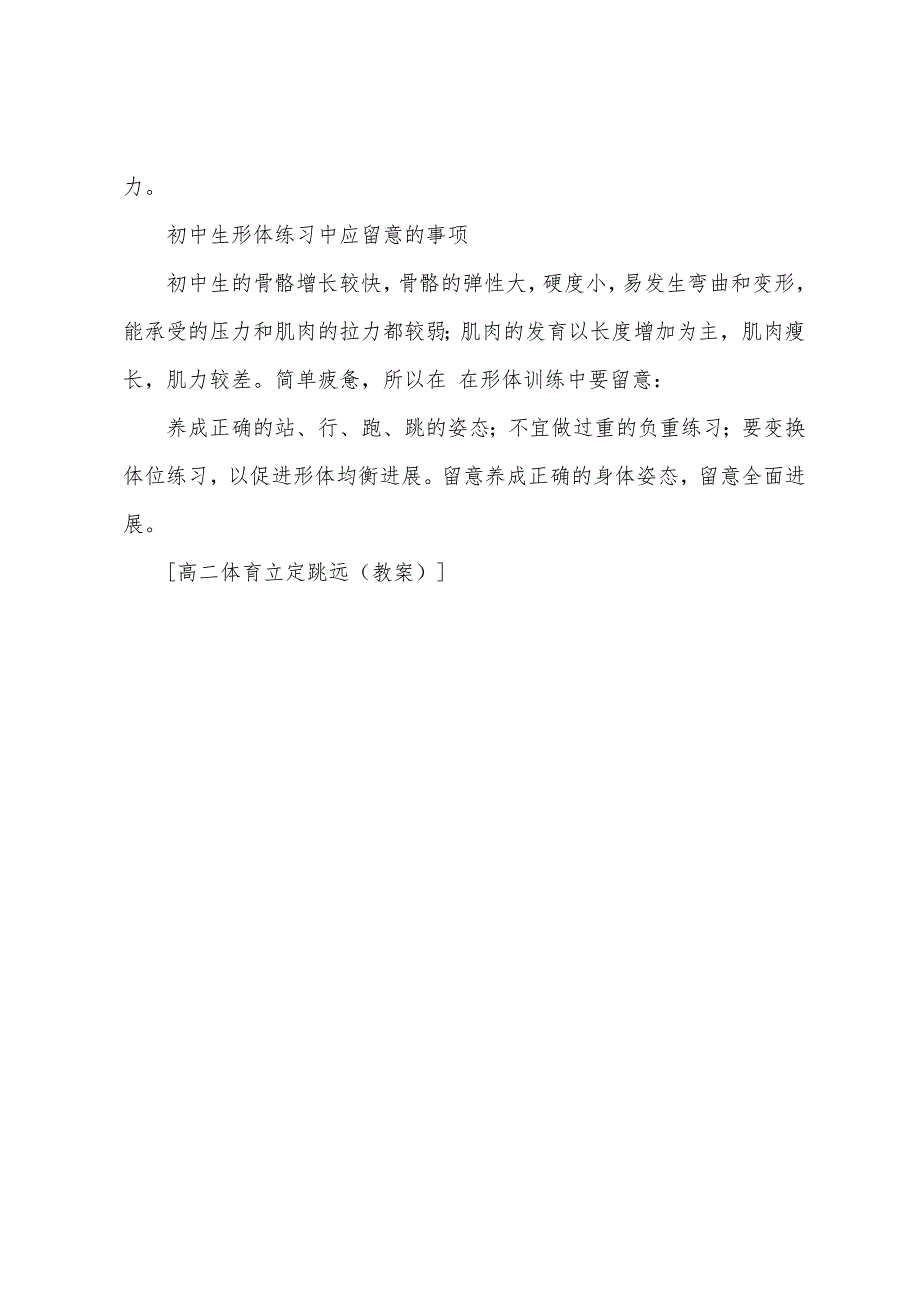 力。
初中生形体练习中应留意的事项
初中生的骨骼增长较快，骨骼的弹性大，硬度小，易发生弯曲和变形，
能承受的压力和肌肉的拉力都较弱；肌肉的发育以长度增加为主，肌肉瘦
长，肌力较差。简单疲惫，所以在 在形体训练中要留意：
养成正确的站、行、跑、跳的姿态；不宜做过重的负重练习；要变换
体位练习，以促进形体均衡进展。留意养成正确的身体姿态，留意全面进
展。
[高二体育立定跳远（教案）]